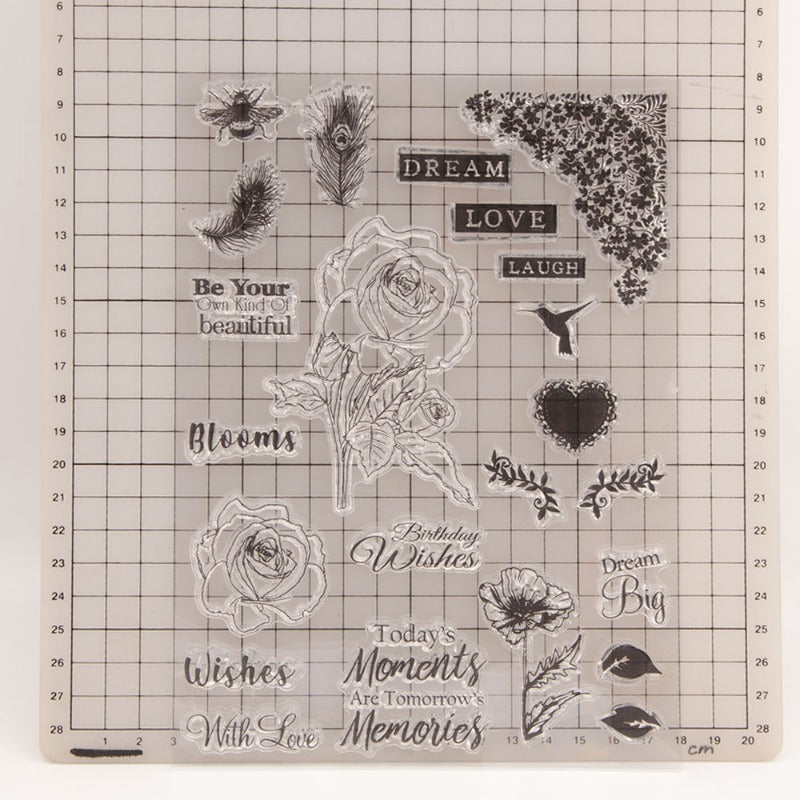 6 6
7 7
8 8
9 9
10 10
11 11
12 12
13 13
14 14
15 15
16 16
17 17
18 18
19 19
20 20
21 21
22 22
23 23
24 24
25 25
26 26
27 27
28 28
DREAM
LOVE
LAUGH
Be Your
Own Kind Of
beautiful
Blooms
Birthday
Wishes
Dream
Big
Wishes
With Love
Today's
Moments
Are Tomorrow's
Memories
1 2 3 13 14 15 16 17 18 19 20
cm